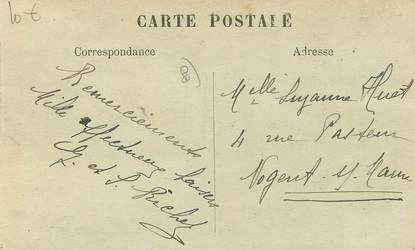 10 €
CARTE POSTALE
Correspondance
Adresse
88
Remerciements
Mille affectueux baisers
G. et S. Richer
Melle Suzanne Huet
4 rue Pasteur
Nogent s/ Marne